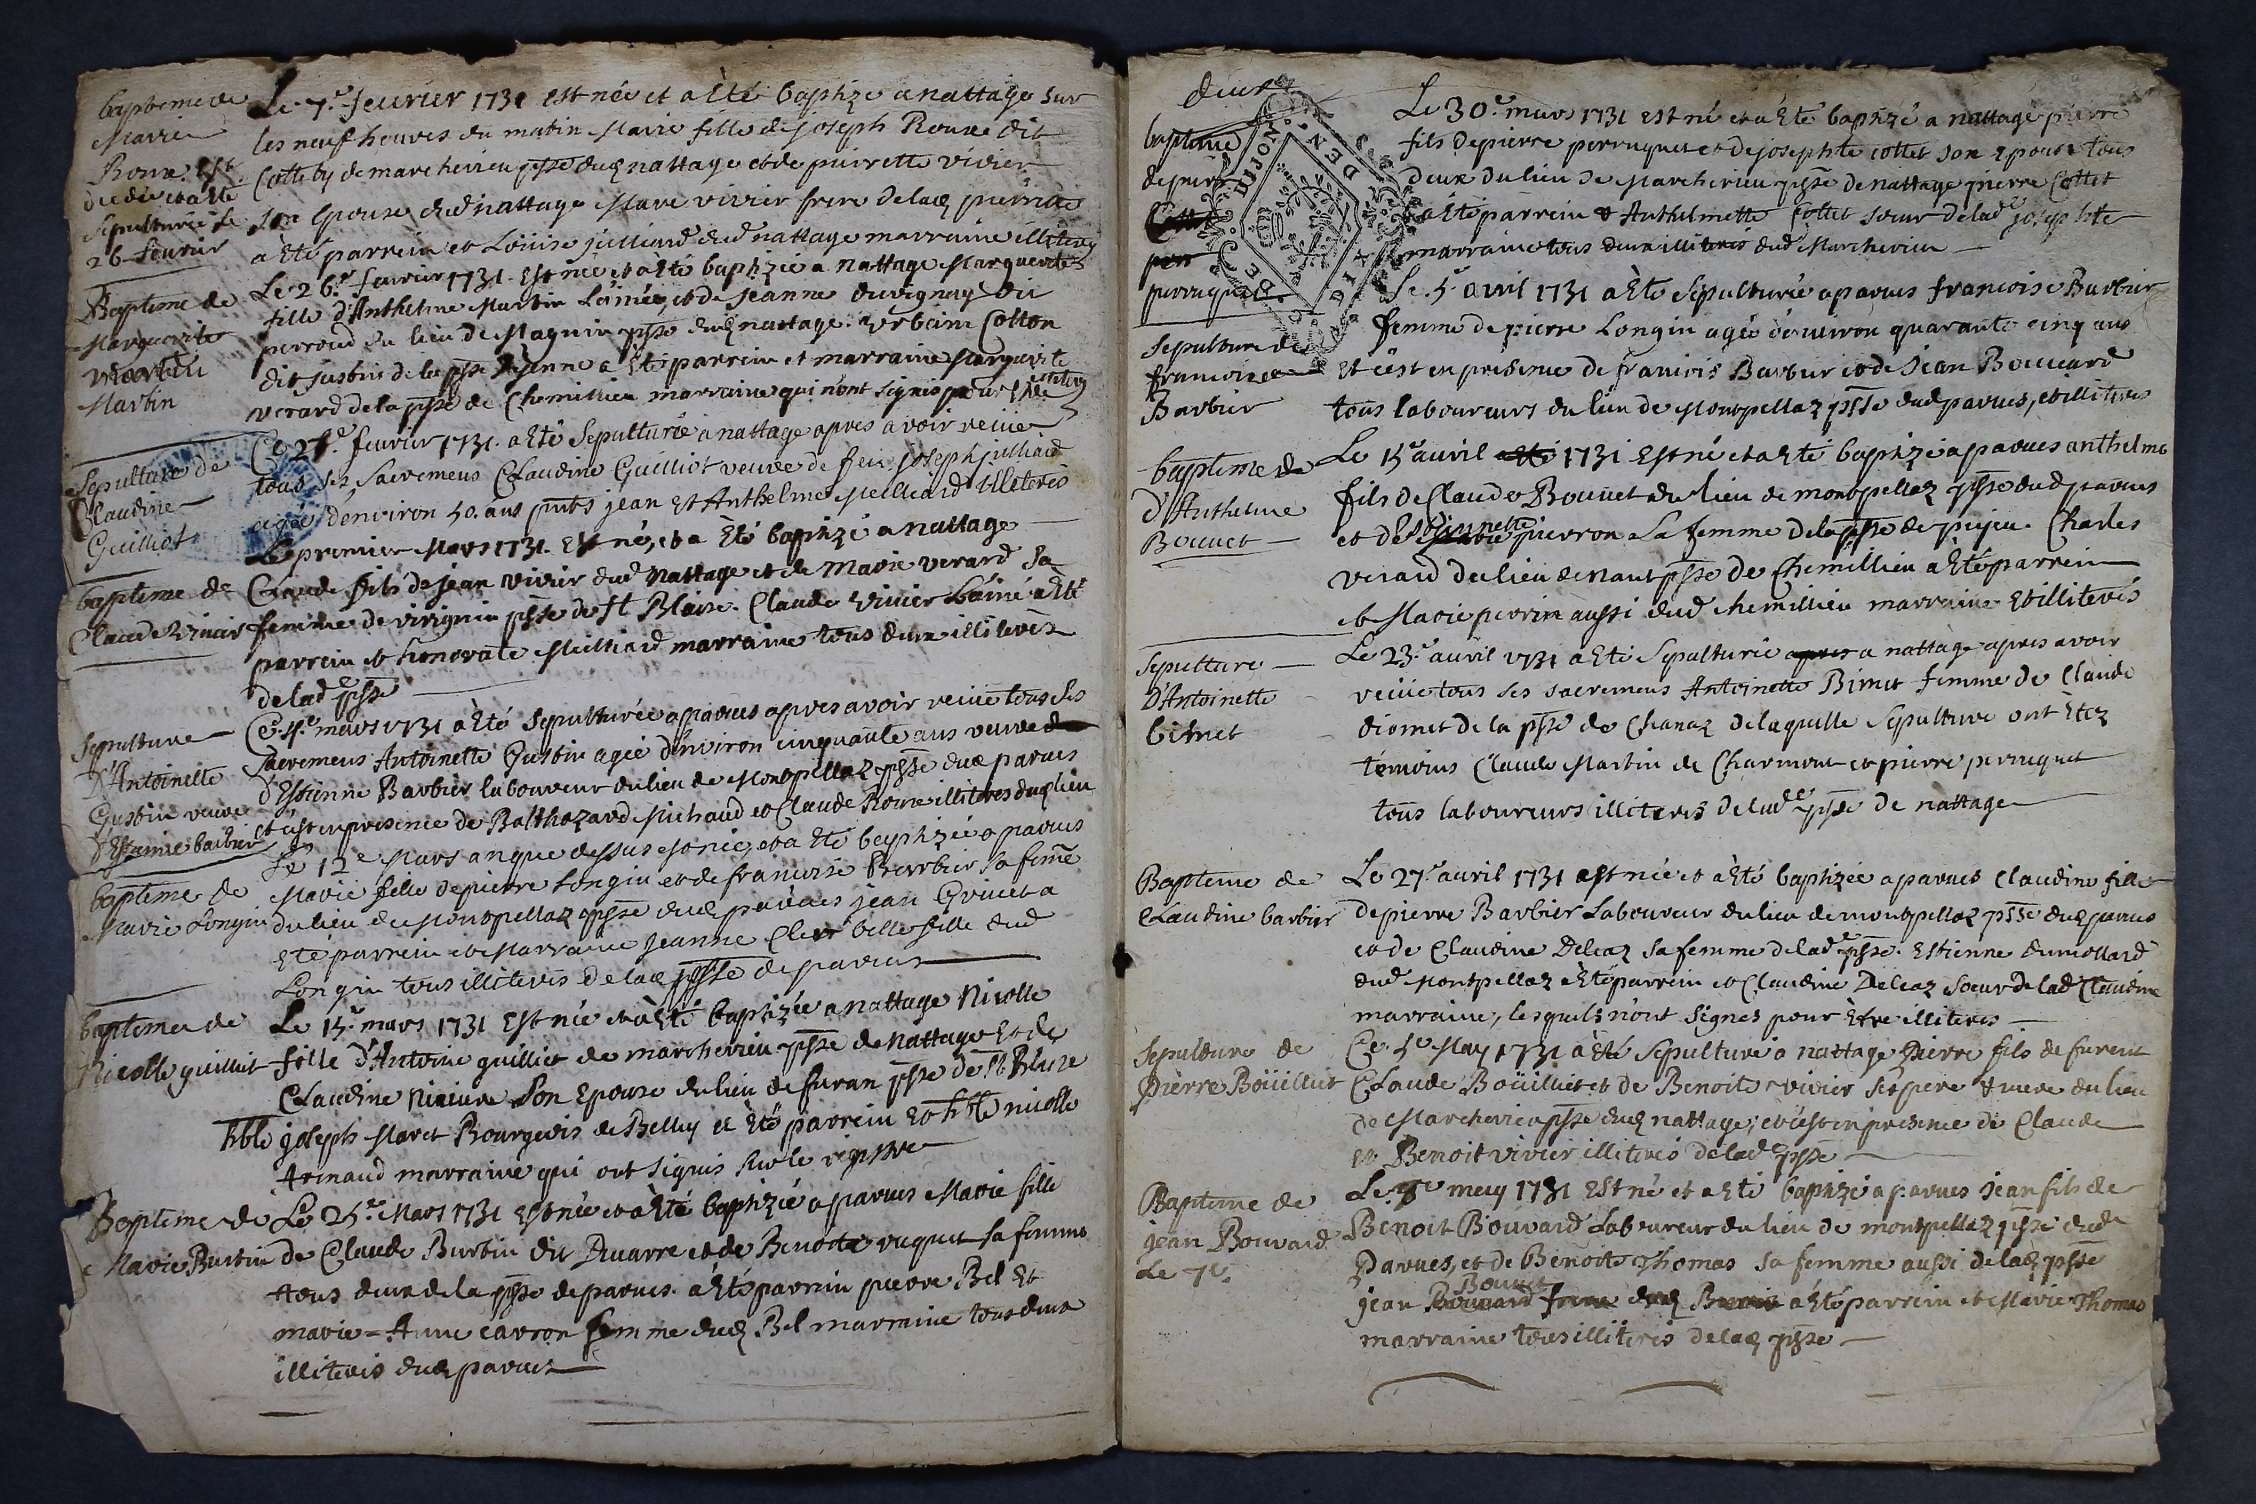 bapteme de
Marie
Roux. Est
décédée et a été
sepulturée le
26 fevrier
Le 7.e fevrier 1731 est née et a Eté baptizé a nattage sur
les neuf heures du matin Marie fille de joseph Roux dit
Colleby de marcherieu psse dud nattage et de pierrette vivier
son Epouse dud nattage Mare vivier frere de lad pierrette
a Eté parrein et Loüise julliard dud nattage marraine illiterés
Baptéme de
Marguerite
Martin
Le 26.e fevrier 1731. Est née et a Eté baptizée a nattage Marguerite
fille d'Anthelme Martin L'ainée, et de jeanne duvignay dit
perroud du lieu de Magnin psse dud nattage. urbain Collon
dit justin de la psse a Eté parrein et marraine Marguerite
verard de la psse de Chemillieu marraine qui n'ont signés pour
Sepulture de
Claudine
Guilliot
Ce 27.e fevrier 1731. a Eté Sepulturée a nattage apres avoir reçüe
tous ses sacremens Claudine Guilliot veuve de feu joseph julliard
agée d'environ 50. ans pnts jean Et Anthelme Meilliard illiterés
baptéme de
Claude Vivier
Le premier Mars 1731. Est né, et a Eté baptizé a nattage
Claude fils de jean vivier dud nattage et de marie verard sa
femme de virignin psse de St Blaise. Claude vivier L'ainé a Eté
parrein et honorate Meilliard marraine tous deux illiterés
de lad psse
Sepulture
D'Antoinette
Gustin veuve
d'Estienne barbier
Ce 4.e mars 1731 a Eté Sepulturée a parves apres avoir reçüe tous ses
sacremens Antoinette Gustin agée d'environ cinquante ans veuve
d'Estienne Barbier laboureur du lieu de Montpellaz psse dud parves
et c'est en presence de Balthazard Michaud et Claude Roux illiterés dud lieu
baptéme de
Marie Longin
Le 12e Mars an que dessus est née, et a Eté baptizée a parves
Marie fille de pierre Longin et de francoise Barbier sa feme
du lieu de Montpellaz psse dud parves jean Gruet a
Eté parrein et Marraine jeanne Cler belle fille dud
Longin tous illiterés de lad psse de parves
baptéme de
Nicolle guilliet
Le 15.e mars 1731 Est née et a Eté baptizée a nattage Nicolle
fille d'Antoine guilliet de marcherieu psse de Nattage et de
Claudine son Epouse du lieu de furan psse de St Blaise
hble joseph Maret Bourgeois de Belley a Eté parrein et hble nicolle
Arnaud marraine qui ont signés sur le
Baptéme de
Marie Burtin
Le 25.e Mars 1731 Est née et a Eté baptizée a parves Marie fille
de Claude Burtin dit Duarre et de Benoite ruquet sa femme
tous deux de la psse de parves. a Eté parrein pierre Bel Et
marie = Anne cavron femme dud Bel marraine tous deux
illiterés dud parves
deux
baptéme
de pierre
perruquet
DE DEN DIX NOEUF
Le 30.e mars 1731 est né et a Eté baptizé a nattage pierre
fils de pierre perruquet et de josephte collet son Epouse tous
deux du lieu de Marcherieu psse de nattage pierre Collet
a Eté parrein & Anthelmette Collet soeur de lad josephte
marraine tous deux illiterés dud Marcherieu
Sepulture de
francoise
Barbier
Le 5.e avril 1731 a Eté Sepulturée a parves francoise Barbier
femme de pierre Longin agée d'environ quarante cinq ans
Et c'est en présence de francois Barbier et de jean Bouvard
tous laboureurs du lieu de Montpellaz psse dud parves, et illiterés
baptéme de
d'Anthelme
Bouvet
Le 15.e avril 1731 Est né et a Eté baptizé a parves anthelme
fils de Claude Bouvet du lieu de montpellaz psse dud parves
et d'Estiennette pierron sa femme de la psse de pujeu. Charles
verard du lieu de nant psse de Chemillieu a Eté parrein
et Marie perrin aussi dud chemillieu marraine Et illiterés
Sepulture
D'Antoinette
bimet
Le 23.e avril 1731 a Eté Sepulturée a nattage apres avoir
reçüe tous ses sacremens Antoinette Bimet femme de Claude
diomet de la psse de Chanaz de laquelle Sepulture ont Etez
témoins Claude Martin de Charmont et pierre perruquet
tous laboureurs illiterés de lad psse de nattage
Baptéme de
Claudine barbier
Le 27.e avril 1731 est née et a Eté baptizée a parves Claudine fille
de pierre Barbier Laboureur du lieu de montpellaz psse dud parves
et de Claudine Deleaz sa femme de lad psse. Estienne dumollard
dud Montpellaz a Eté parrein et Claudine Deleaz soeur de lad Claudine
marraine, lesquels n'ont signés pour Etre illiterés
Sepulture de
Pierre Boüilliet
Ce 5e May 1731 a Eté Sepulturé a nattage Pierre fils de furent
Claude Boüilliet et de Benoite vivier ses pere & mere du lieu
de Marcherieu psse dud nattage; et c'est en presence de Claude
et Benoit vivier illiterés de lad psse
Baptéme de
jean Bouvard
Le 7e.
Le 7e may 1731 Est né et a Eté baptizé a parves jean fils de
Benoit Bouvard Laboureur du lieu de montpellaz psse dud
Parves, et de Benoite Thomas sa femme aussi de lad psse
jean Bouvet a Eté parrein et Marie Thomas
marraine tous illiterés de lad psse